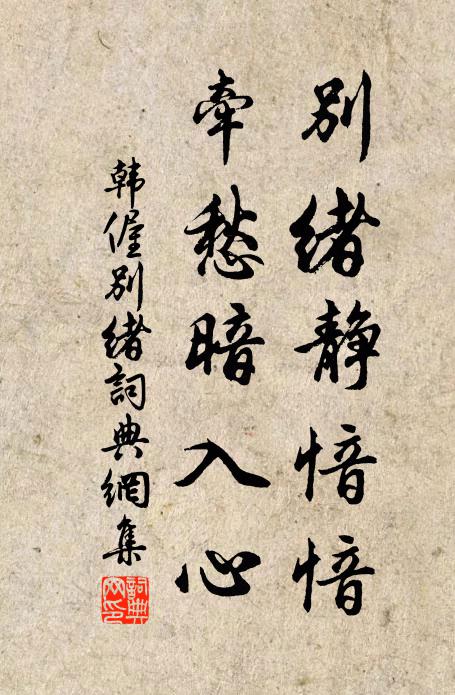 别绪静愔愔
牵愁暗入心
韩偓别绪詞典網集
詞典网印